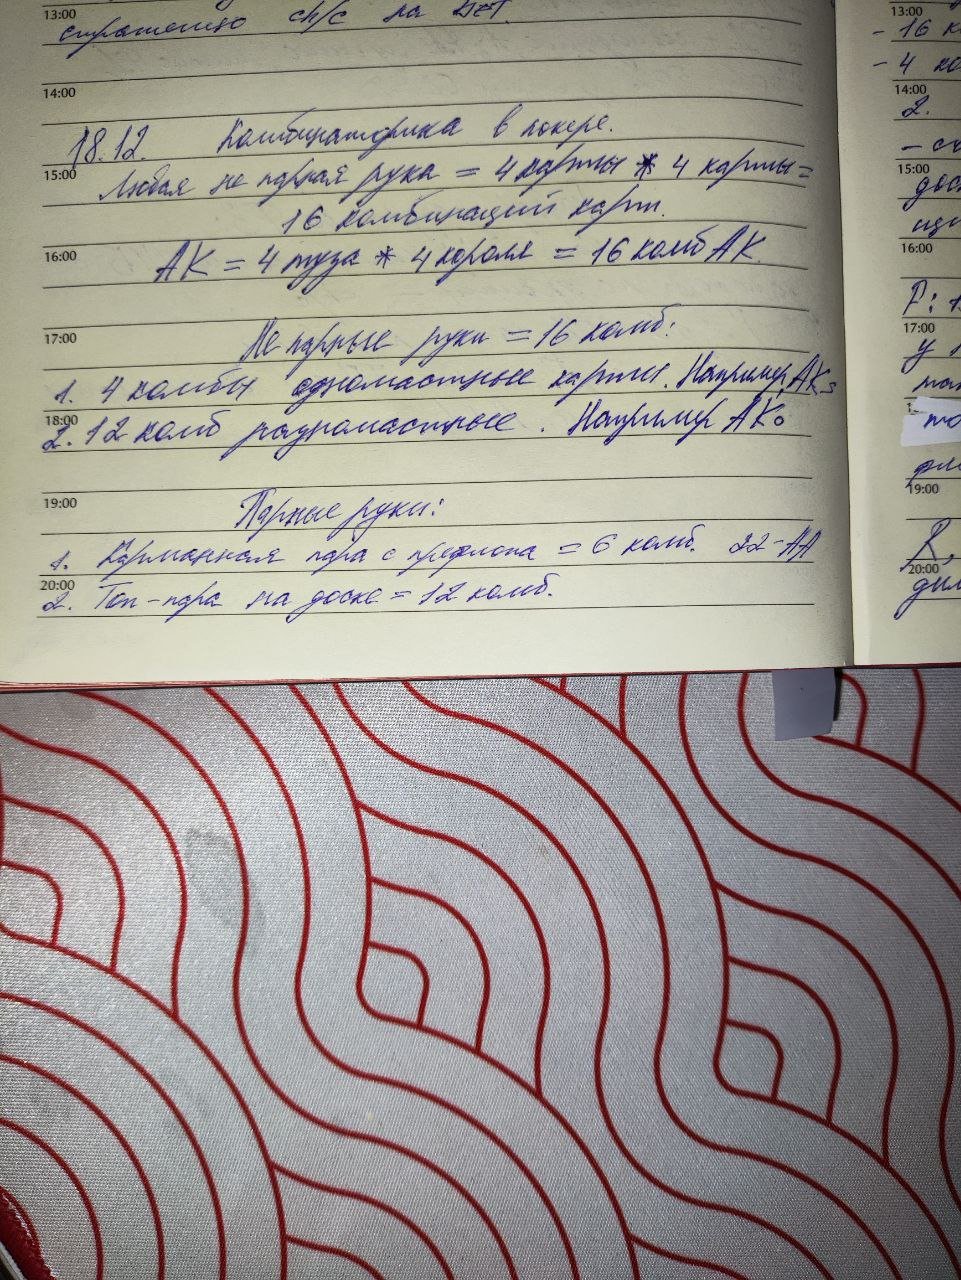 13:00
на
14:00
18.12. Комбинаторика в покере.
15:00
Любая не парная рука = 4 карты * 4 карты =
16 комбинаций карт.
16:00
АК = 4 туза * 4 короля = 16 комб АК.
17:00
Не парные руки = 16 комб:
1. 4 комбы одномастные карты. Например, AKs
18:00
2. 12 комб разномастные. Например AKo
19:00
Парные руки:
1. Карманная пара с префлопа = 6 комб. 22-АА
20:00
2. Топ-пара на доске = 12 комб.
13:00
- 16
- 4
14:00
2.
15:00
16:00
F:
17:00
у
19:00
R.
20:00